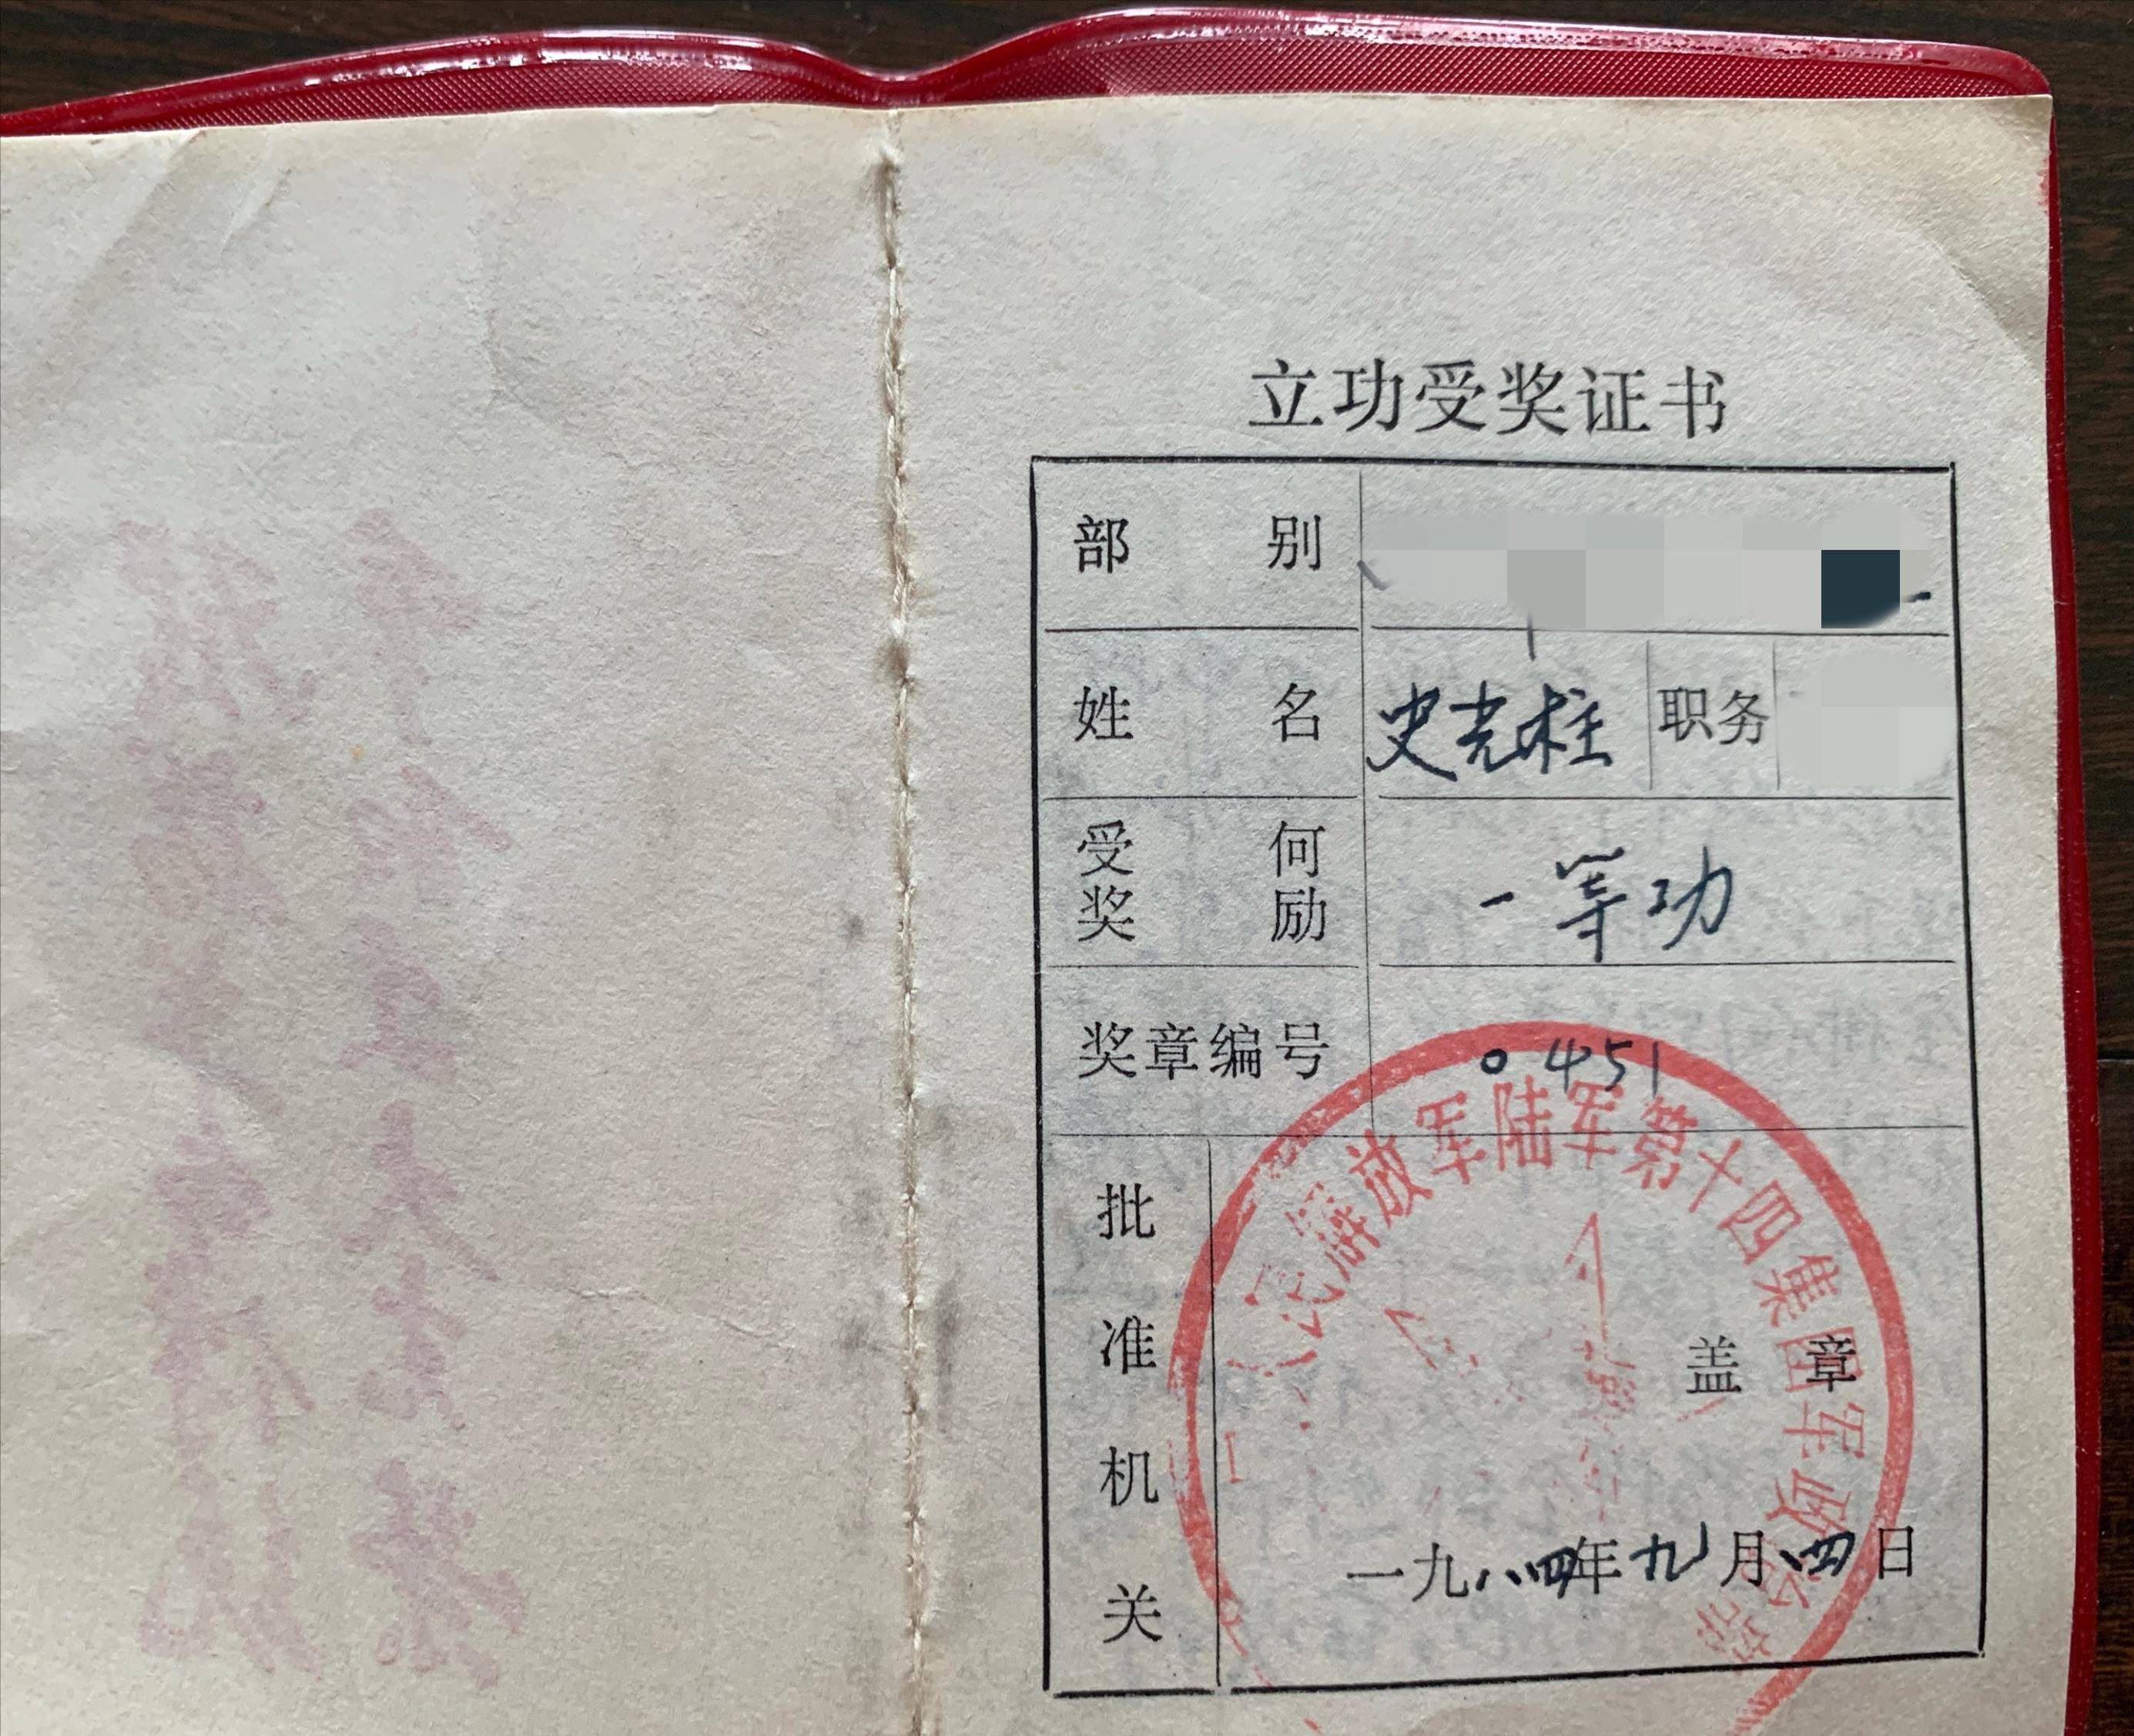 立功受奖证书
部别
姓名 史光柱 职务
受何奖励 一等功
奖章编号 0451
批准机关
人民解放军陆军第十四集团军政治部
盖章
一九八四年九月四日